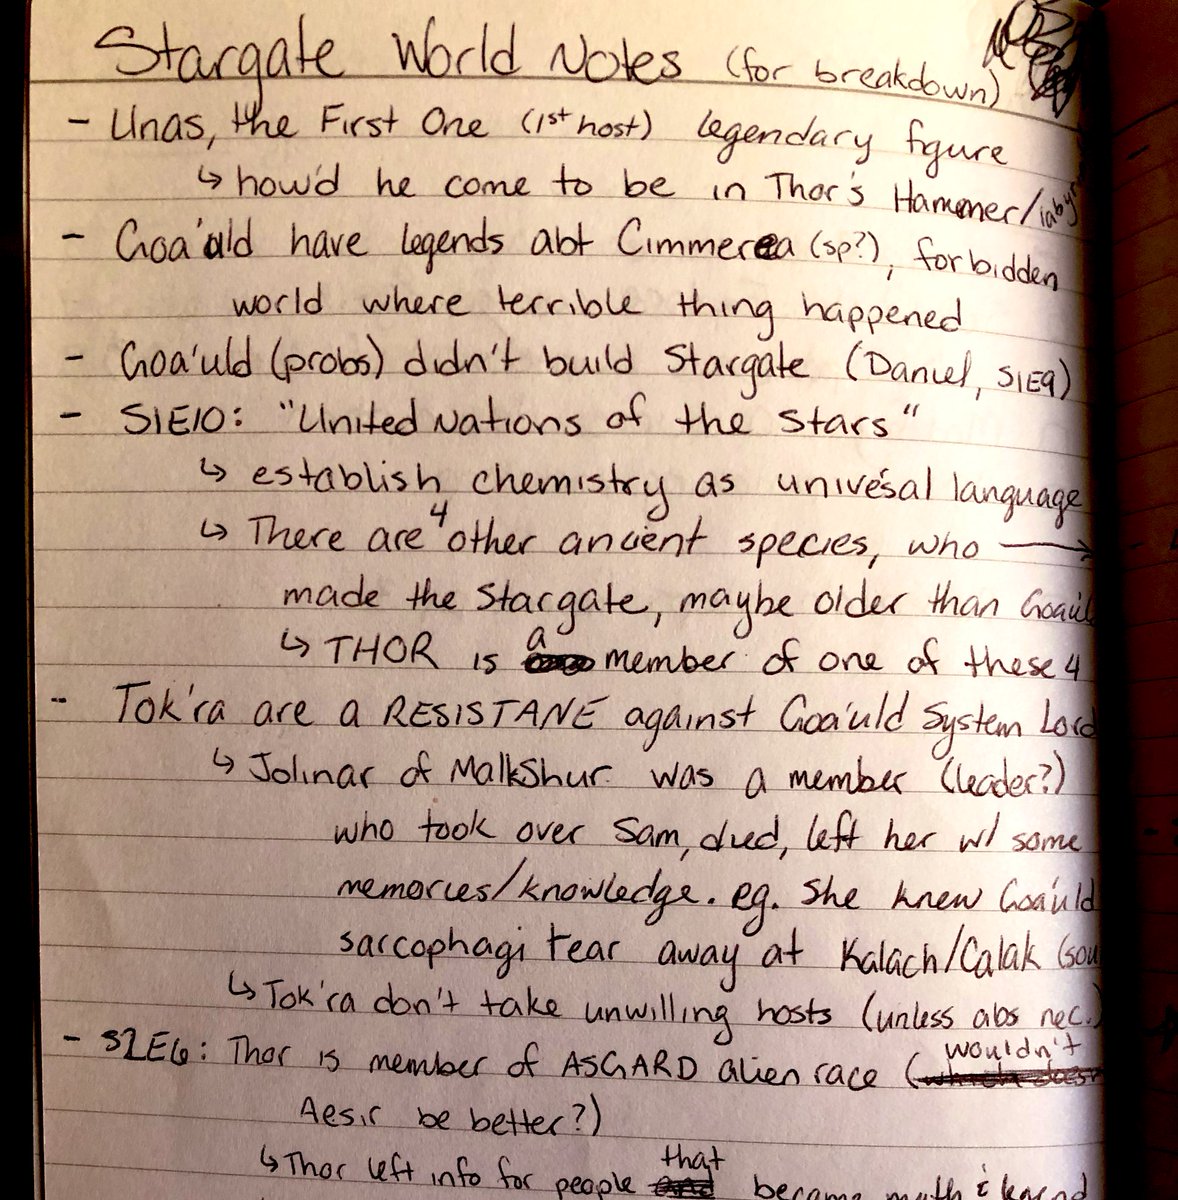 Stargate World Notes (for breakdown)
- Unas, the First One (1st host) legendary figure
↳ how'd he come to be in Thor's Hammer/labyr
- Goa'uld have legends abt Cimmerea (sp?), forbidden
world where terrible thing happened
- Goa'uld (probs) didn't build Stargate (Daniel, S1E9)
- S1E10: "United Nations of the Stars"
↳ establish chemistry as univesal language
↳ There are 4 other ancient species, who →
made the Stargate, maybe older than Goa'ul
↳ THOR is a member of one of these 4
- Tok'ra are a RESISTANE against Goa'uld System Lord
↳ Jolinar of Malkshur was a member (leader?)
who took over Sam, died, left her w/ some
memories/knowledge. eg. She knew Goa'uld
sarcophagi tear away at Kalach/Calak (sou
↳ Tok'ra don't take unwilling hosts (unless abs nec.)
- S2E6: Thor is member of ASGARD alien race (wouldn't
Aesir be better?)
↳ Thor left info for people that became myth & legend